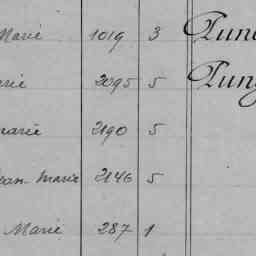 Marie 1019 3
rie 2095 5
marie 2190 5
Jean Marie 2146 5
Marie 287 1